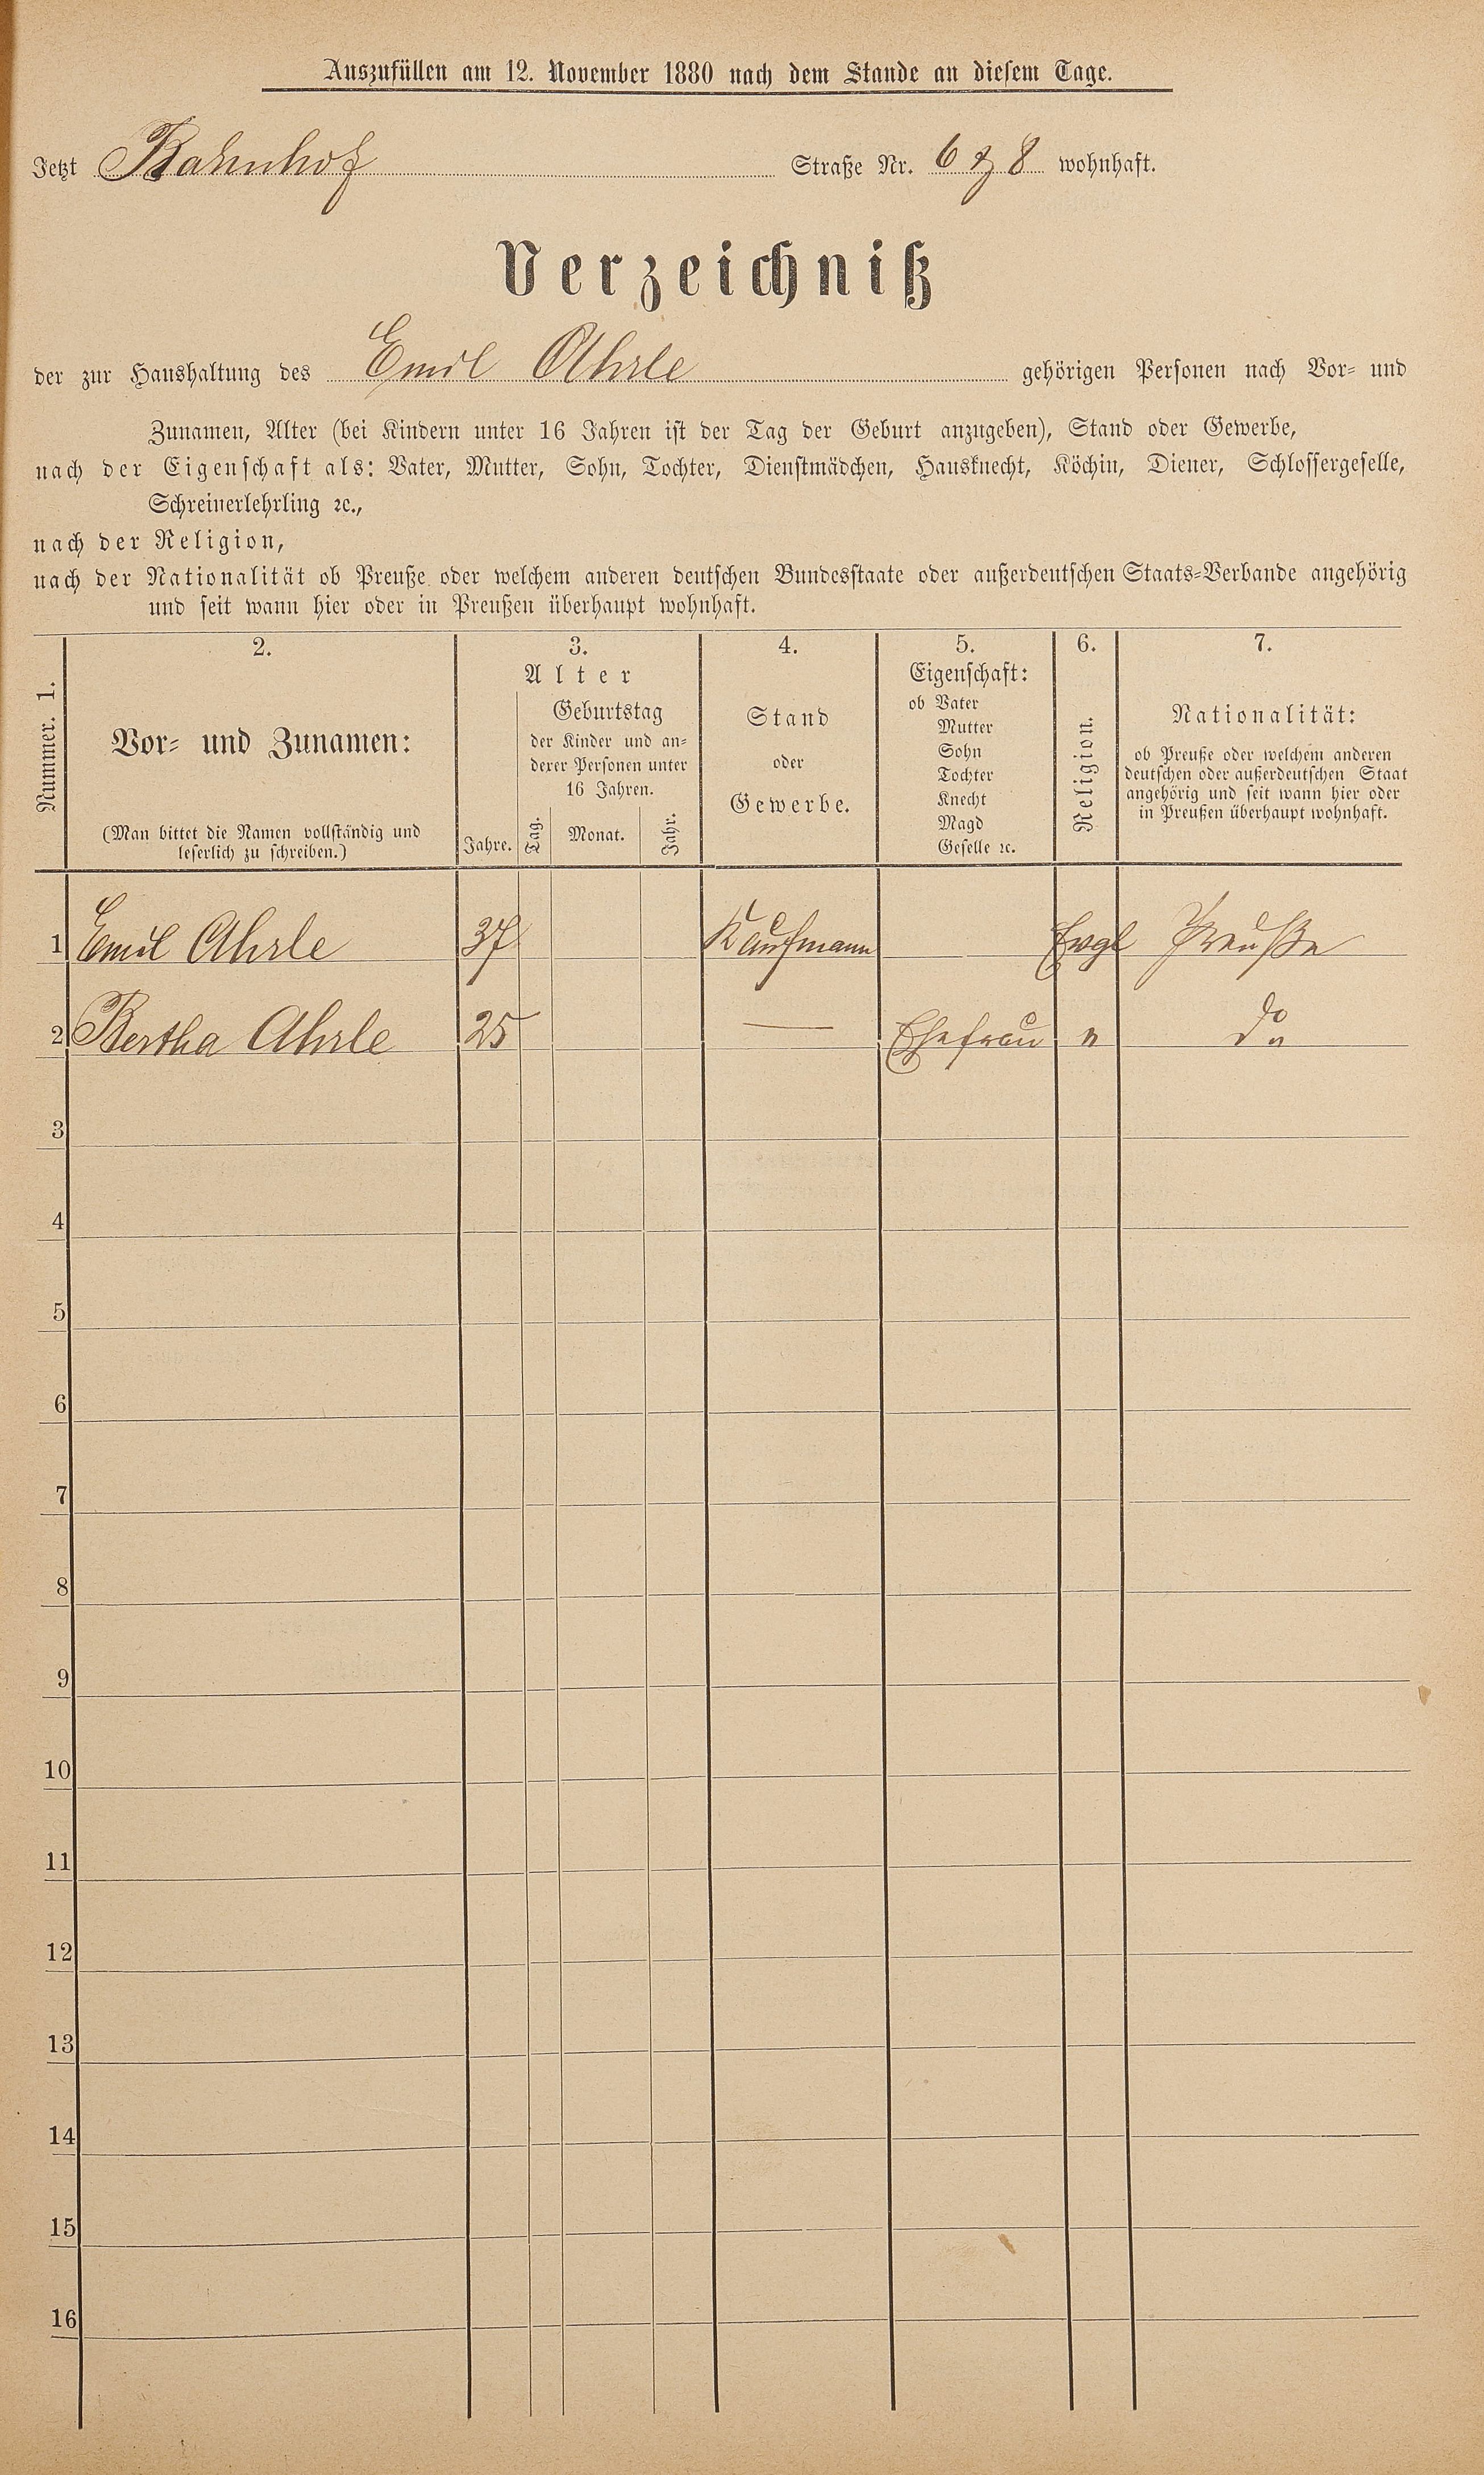 Auszufüllen am 12. November 1880 nach dem Stande an diesem Tage.
Jetzt Bahnhof Straße Nr. 6 & 8 wohnhaft.
Verzeichniß
der zur Haushaltung des Emil Ahrle gehörigen Personen nach Vor- und
Zunamen, Alter (bei Kindern unter 16 Jahren ist der Tag der Geburt anzugeben), Stand oder Gewerbe,
nach der Eigenschaft als: Vater, Mutter, Sohn, Tochter, Dienstmädchen, Hausknecht, Köchin, Diener, Schlossergeselle,
Schreinerlehrling ꝛc.,
nach der Religion,
nach der Nationalität ob Preuße oder welchem anderen deutschen Bundesstaate oder außerdeutschen Staats-Verbande angehörig
und seit wann hier oder in Preußen überhaupt wohnhaft.
Nummer. 1.
2.
Vor- und Zunamen:
(Man bittet die Namen vollständig und
leserlich zu schreiben.)
3.
Alter
Geburtstag
der Kinder und an-
derer Personen unter
16 Jahren.
Jahre. Tag. Monat. Jahr.
4.
Stand
oder
Gewerbe.
5.
Eigenschaft:
ob Vater
Mutter
Sohn
Tochter
Knecht
Magd
Geselle ꝛc.
6.
Religion.
7.
Nationalität:
ob Preuße oder welchem anderen
deutschen oder außerdeutschen Staat
angehörig und seit wann hier oder
in Preußen überhaupt wohnhaft.
1 Emil Ahrle 37 Kaufmann Evgl Preuße
2 Bertha Ahrle 25 — Ehefrau " do
3
4
5
6
7
8
9
10
11
12
13
14
15
16